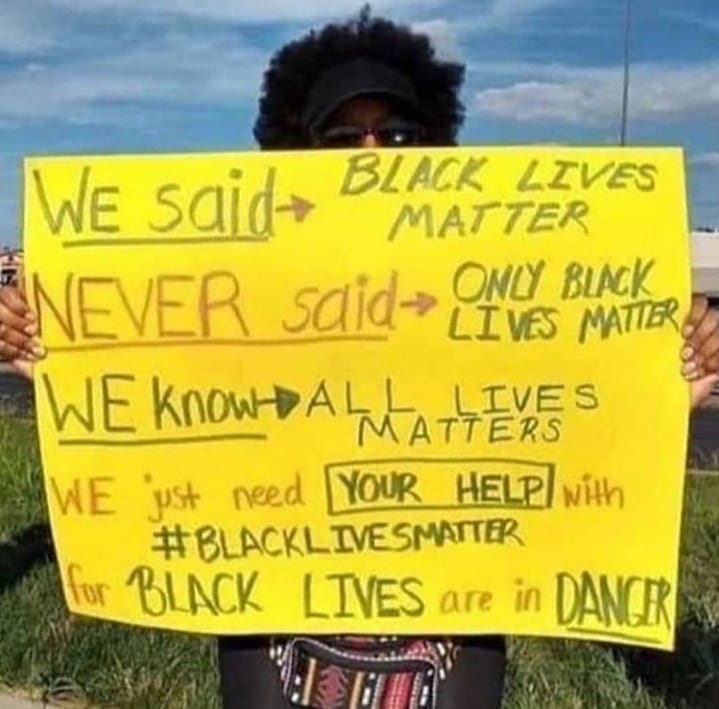 WE said→ BLACK LIVES
MATTER
NEVER said→ ONLY BLACK
LIVES MATTER
WE know→ALL LIVES
MATTERS
WE just need YOUR HELP with
#BLACKLIVESMATTER
for BLACK LIVES are in DANGER